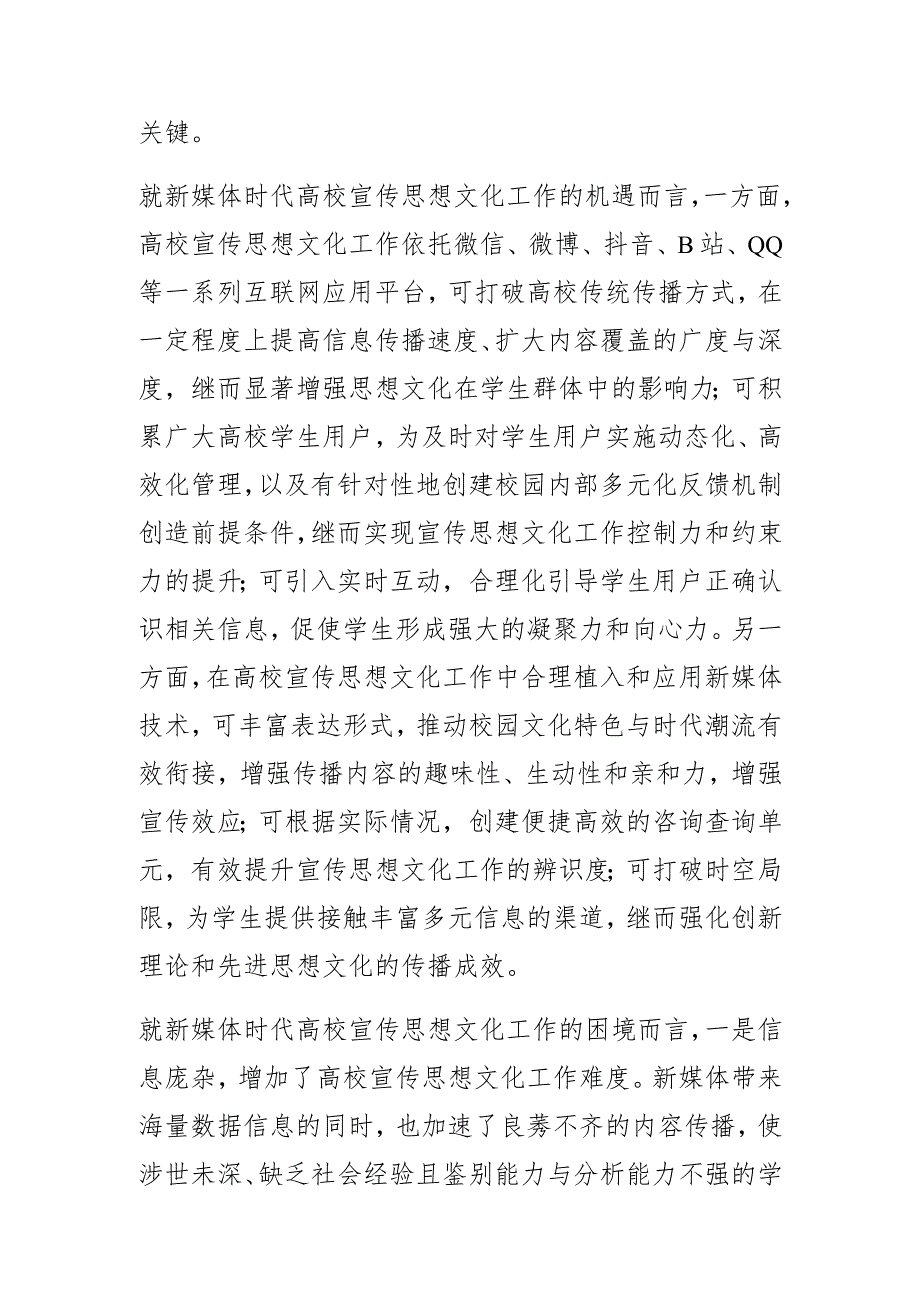 关键。
就新媒体时代高校宣传思想文化工作的机遇而言，一方面，
高校宣传思想文化工作依托微信、微博、抖音、B 站、QQ
等一系列互联网应用平台，可打破高校传统传播方式，在
一定程度上提高信息传播速度、扩大内容覆盖的广度与深
度，继而显著增强思想文化在学生群体中的影响力；可积
累广大高校学生用户，为及时对学生用户实施动态化、高
效化管理，以及有针对性地创建校园内部多元化反馈机制
创造前提条件，继而实现宣传思想文化工作控制力和约束
力的提升；可引入实时互动，合理化引导学生用户正确认
识相关信息，促使学生形成强大的凝聚力和向心力。另一
方面，在高校宣传思想文化工作中合理植入和应用新媒体
技术，可丰富表达形式，推动校园文化特色与时代潮流有
效衔接，增强传播内容的趣味性、生动性和亲和力，增强
宣传效应；可根据实际情况，创建便捷高效的咨询查询单
元，有效提升宣传思想文化工作的辨识度；可打破时空局
限，为学生提供接触丰富多元信息的渠道，继而强化创新
理论和先进思想文化的传播成效。
就新媒体时代高校宣传思想文化工作的困境而言，一是信
息庞杂，增加了高校宣传思想文化工作难度。新媒体带来
海量数据信息的同时，也加速了良莠不齐的内容传播，使
涉世未深、缺乏社会经验且鉴别能力与分析能力不强的学